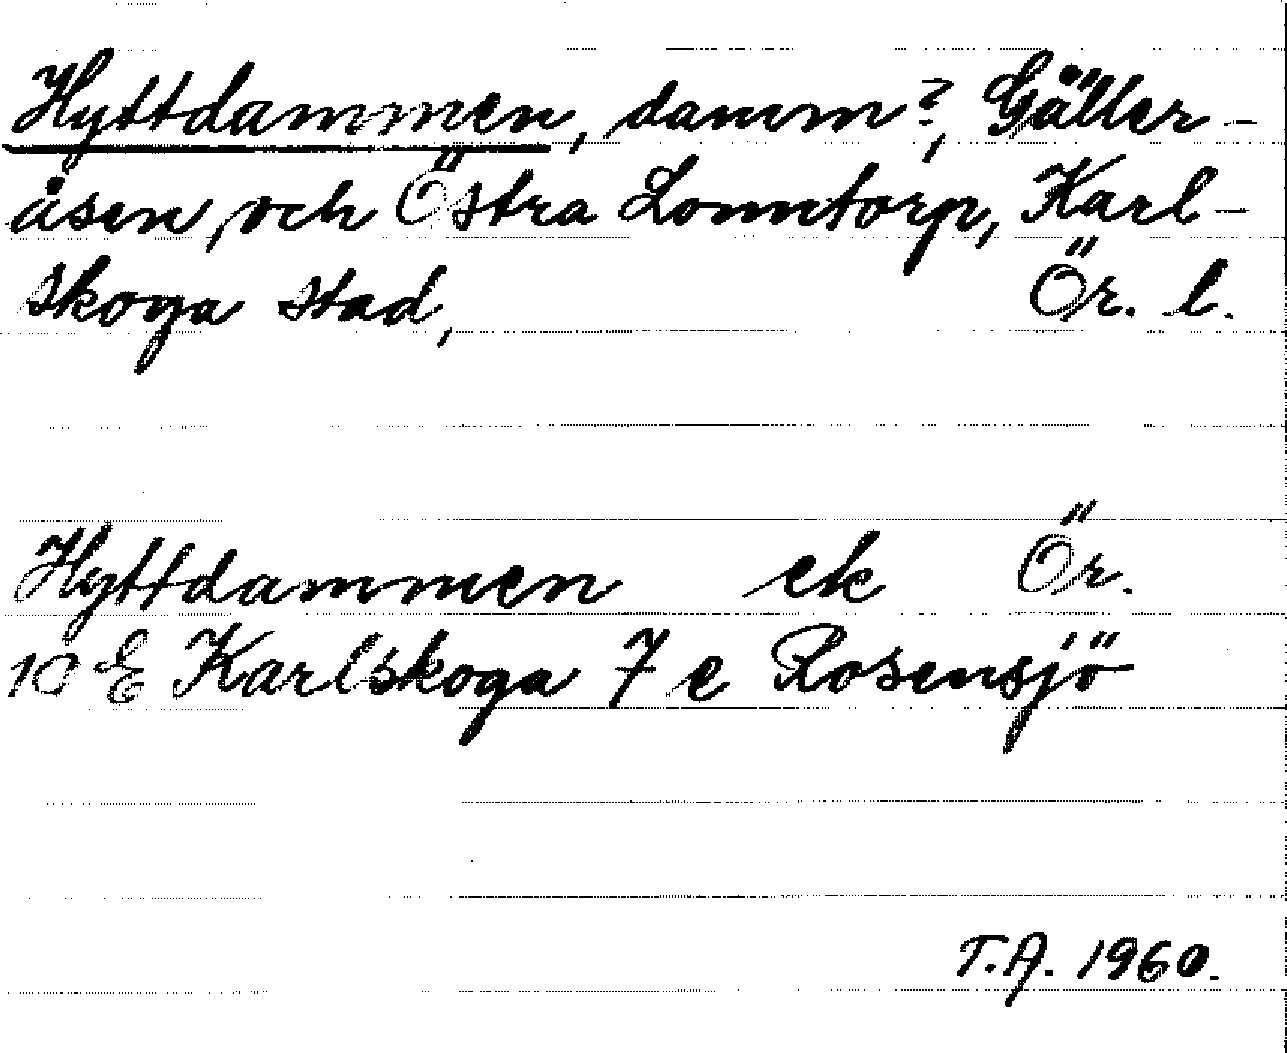 Hyttdammen, damm?, Gäller-
åsen, och Östra Lonntorp, Karl-
skoga stad, Ör. l.
Hyttdammen ek Ör.
10 E Karlskoga 7 e Rosensjö
T.A. 1960.